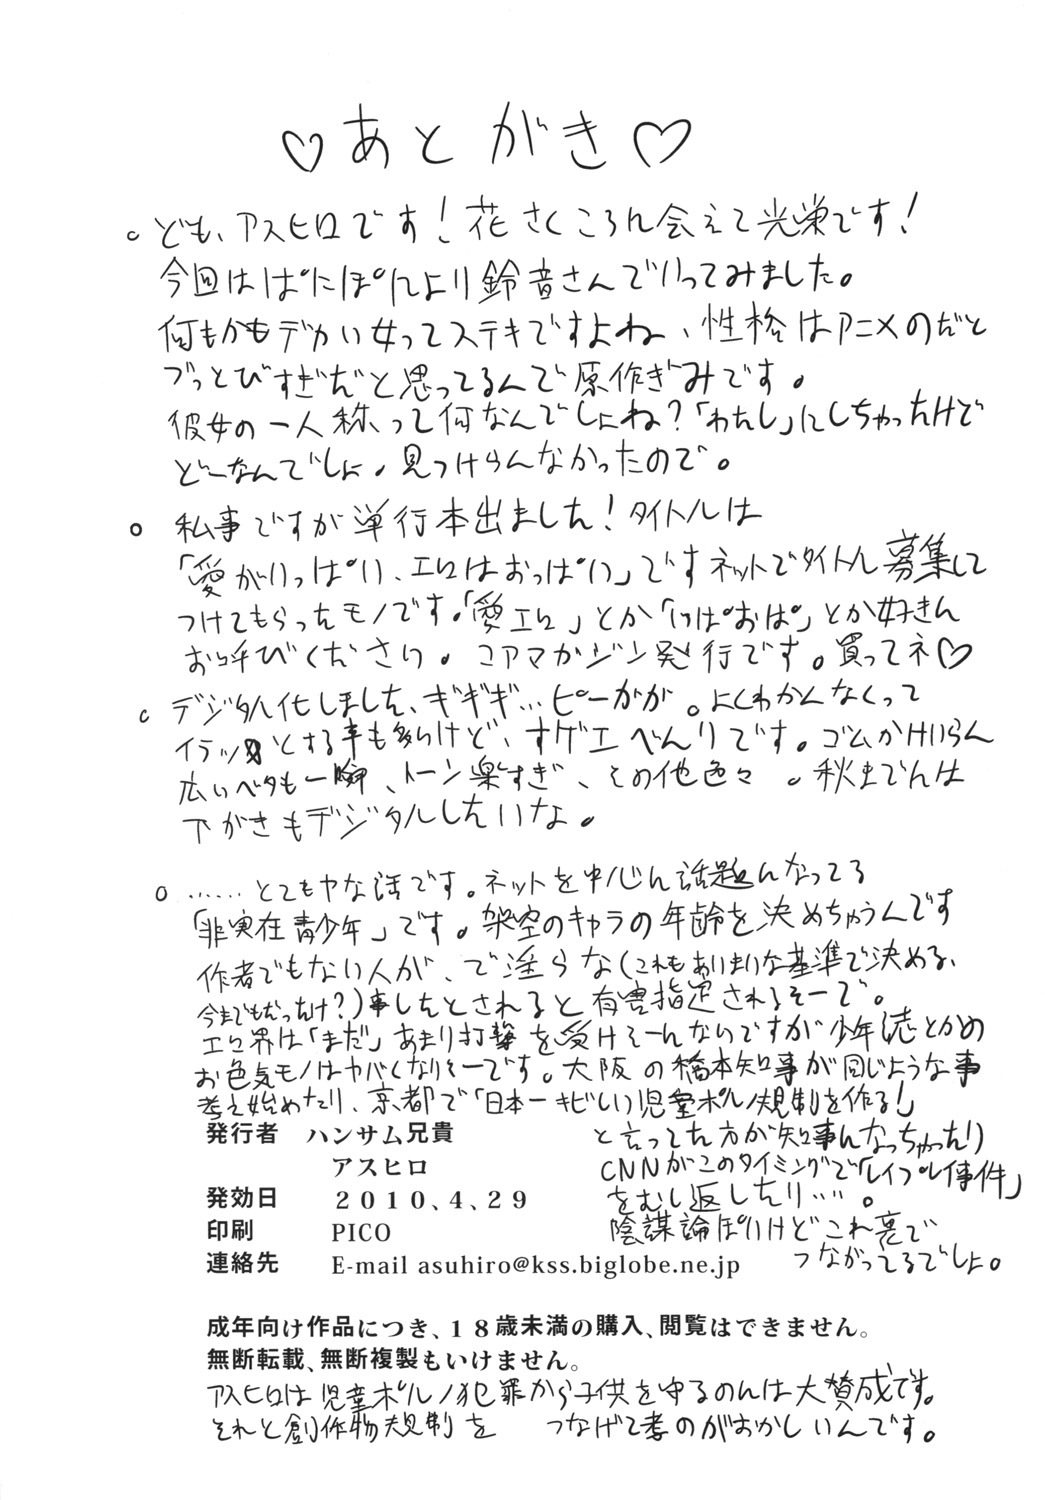 ♡あとがき♡
ども、アスヒロです!花さくころに会えて光栄です!
今回はぱにぽにより鈴音さんでいってみました。
何もかもデカい女ってステキですよね、性格はアニメのだと
ブっとびすぎだと思ってるんで原作ぎみです。
彼女の一人称って何なんでしょね?「わたし」にしちゃったけど
どーなんでしょ。見つけらんなかったので。
私事ですが単行本出ました!タイトルは
「愛がいっぱい、エロはおっぱい」ですネットでタイトル募集して
つけてもらったモノです。「愛エロ」とか「いぱおぱ」とか好きに
お呼びください。コアマガジン発行です。買ってネ♡
デジタル化しました、ギギギ…ピーガガ。よくわかんなくって
イラッとする事も多いけど、すゲエべんりです。ゴムかけいらん
広いベタも一瞬、トーン楽すぎ、その他色々。秋までには
下がきもデジタルしたいな。
……とてもヤな話です。ネットを中心に話題になってる
「非実在青少年」です。架空のキャラの年齢を決めちゃうんです
作者でもない人が、で淫らな(これもあいまいな基準で決める、
今までもだっけ?)事したとされると有害指定されるそーで。
エロ界は「まだ」あまり打撃を受けそーんないですが少年誌とかの
お色気モノはヤバくなりそーです。大阪の橋本知事が同じような事
考え始めたり、京都で「日本一キビしい児童ポルノ規制を作る!」
と言ってた方が知事になっちゃったり
CNNがこのタイミングで「レイプレイ事件」
をむし返したり…。
陰謀論ぽいけどこれ裏で
つながってるでしょ。
発行者 ハンサム兄貴
アスヒロ
発効日 2010、4、29
印刷 PICO
連絡先 E-mail asuhiro@kss.biglobe.ne.jp
成年向け作品につき、18歳未満の購入、閲覧はできません。
無断転載、無断複製もいけません。
アスヒロは児童ポルノ犯罪から子供を守るのには大賛成です。
それと創作物規制を つなげて考のがおかしいんです。